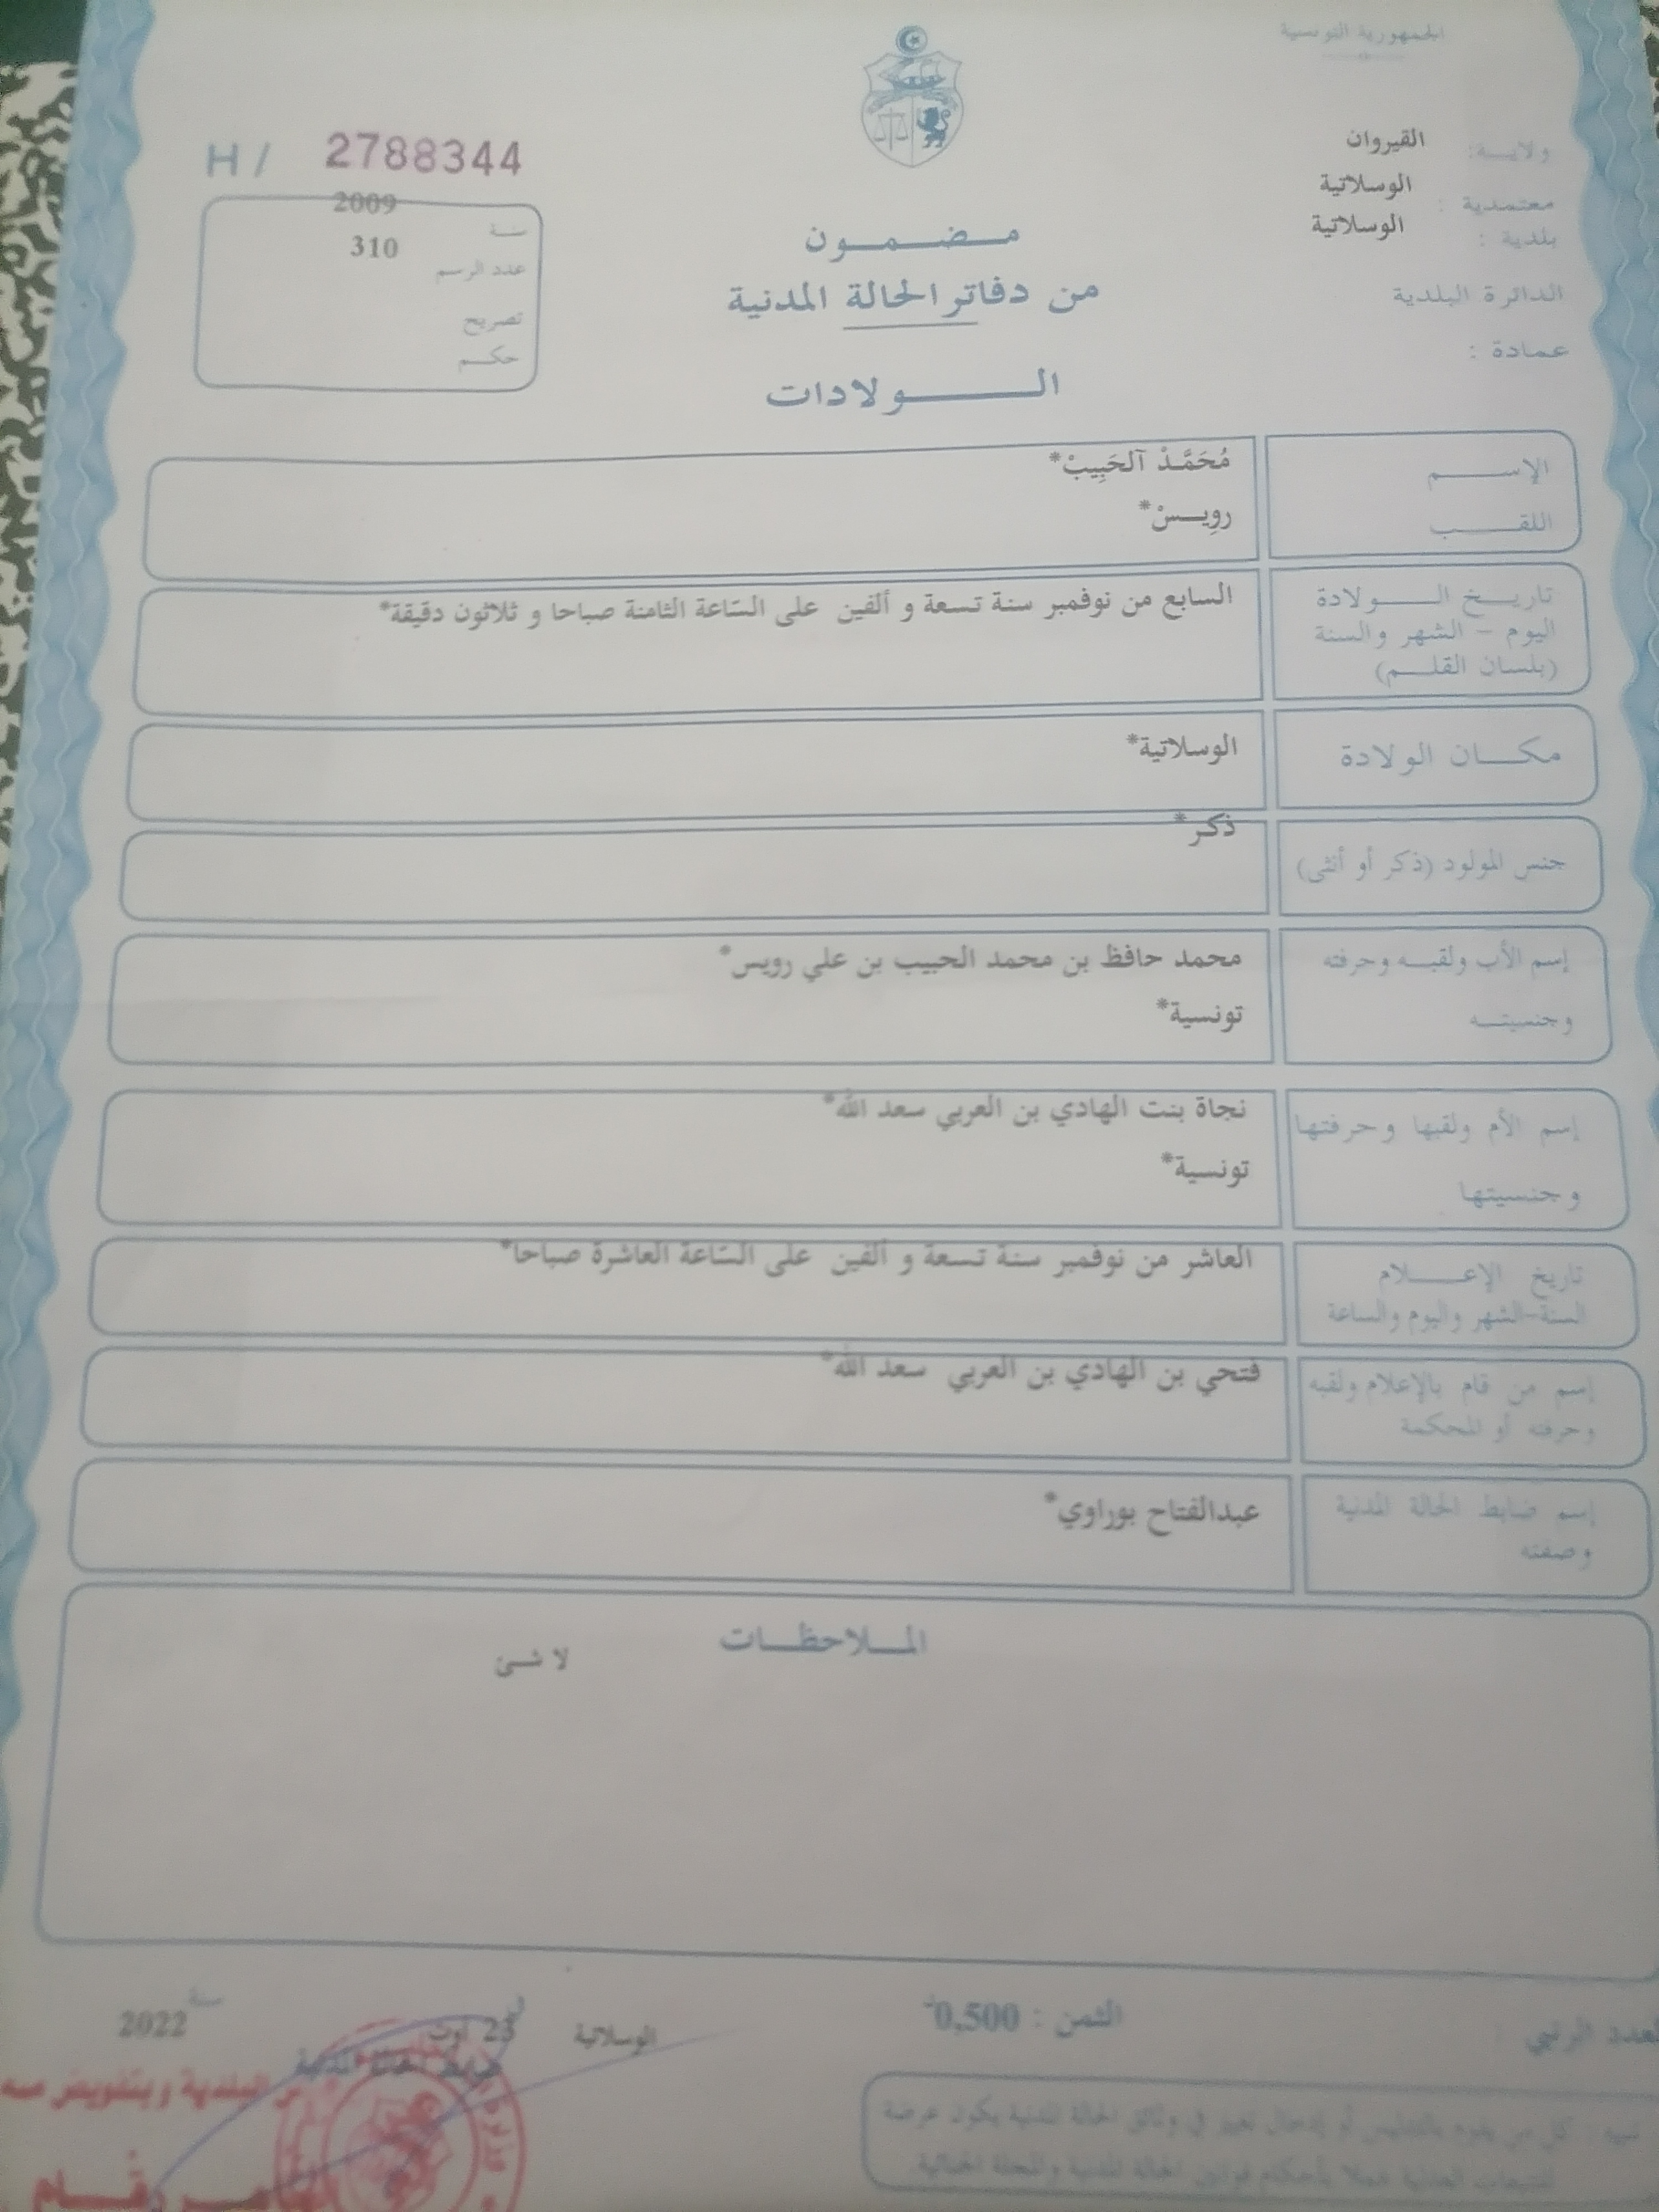 الجمهورية التونسية
ولايـــة: القيروان
معتمدية : الوسلاتية
بلدية : الوسلاتية
الدائرة البلدية
عمادة :
H / 2788344
سنـة 2009
عدد الرسم 310
تصريح
حكـــم
مـــضـــمـــون
من دفاتر الحالة المدنية
الـــــــــولادات
الإســــــم مُحَمَّدْ آلحَبِيبْ*
اللقـــــب روِيـــسْ*
تاريـــخ الـــــولادة السابع من نوفمبر سنة تسعة و ألفين على السّاعة الثامنة صباحا و ثلاثون دقيقة*
اليوم – الشهر والسنة
(بلسان القلـــم)
مكـــــان الولادة الوسلاتية*
جنس المولود (ذكر أو أنثى) ذكر*
إسم الأب ولقبـــه وحرفته محمد حافظ بن محمد الحبيب بن علي رويس*
وجنسيتـــه تونسية*
إسم الأم ولقبها وحرفتها نجاة بنت الهادي بن العربي سعد الله*
وجنسيتها تونسية*
تاريخ الإعـــــلام العاشر من نوفمبر سنة تسعة و ألفين على السّاعة العاشرة صباحا*
السنة-الشهر واليوم والساعة
إسم من قام بالإعلام ولقبه فتحي بن الهادي بن العربي سعد الله*
وحرفته أو المحكمة
إسم ضابط الحالة المدنية عبدالفتاح بوراوي*
وصفته
الملاحظـــات
لا شئ
العدد الرتبي :
الثمن : 0,500
الوسلاتية في 23 أوت سنة 2022
ضابط الحالة المدنية
البلدية وبتفويض منه
تنبيه : كل من يقوم بالتدليس أو إدخال تغيير في وثائق الحالة المدنية يكون عرضة
للتتبعات العدلية عملا بأحكام قوانين الحالة المدنية والمجلة الجنائية